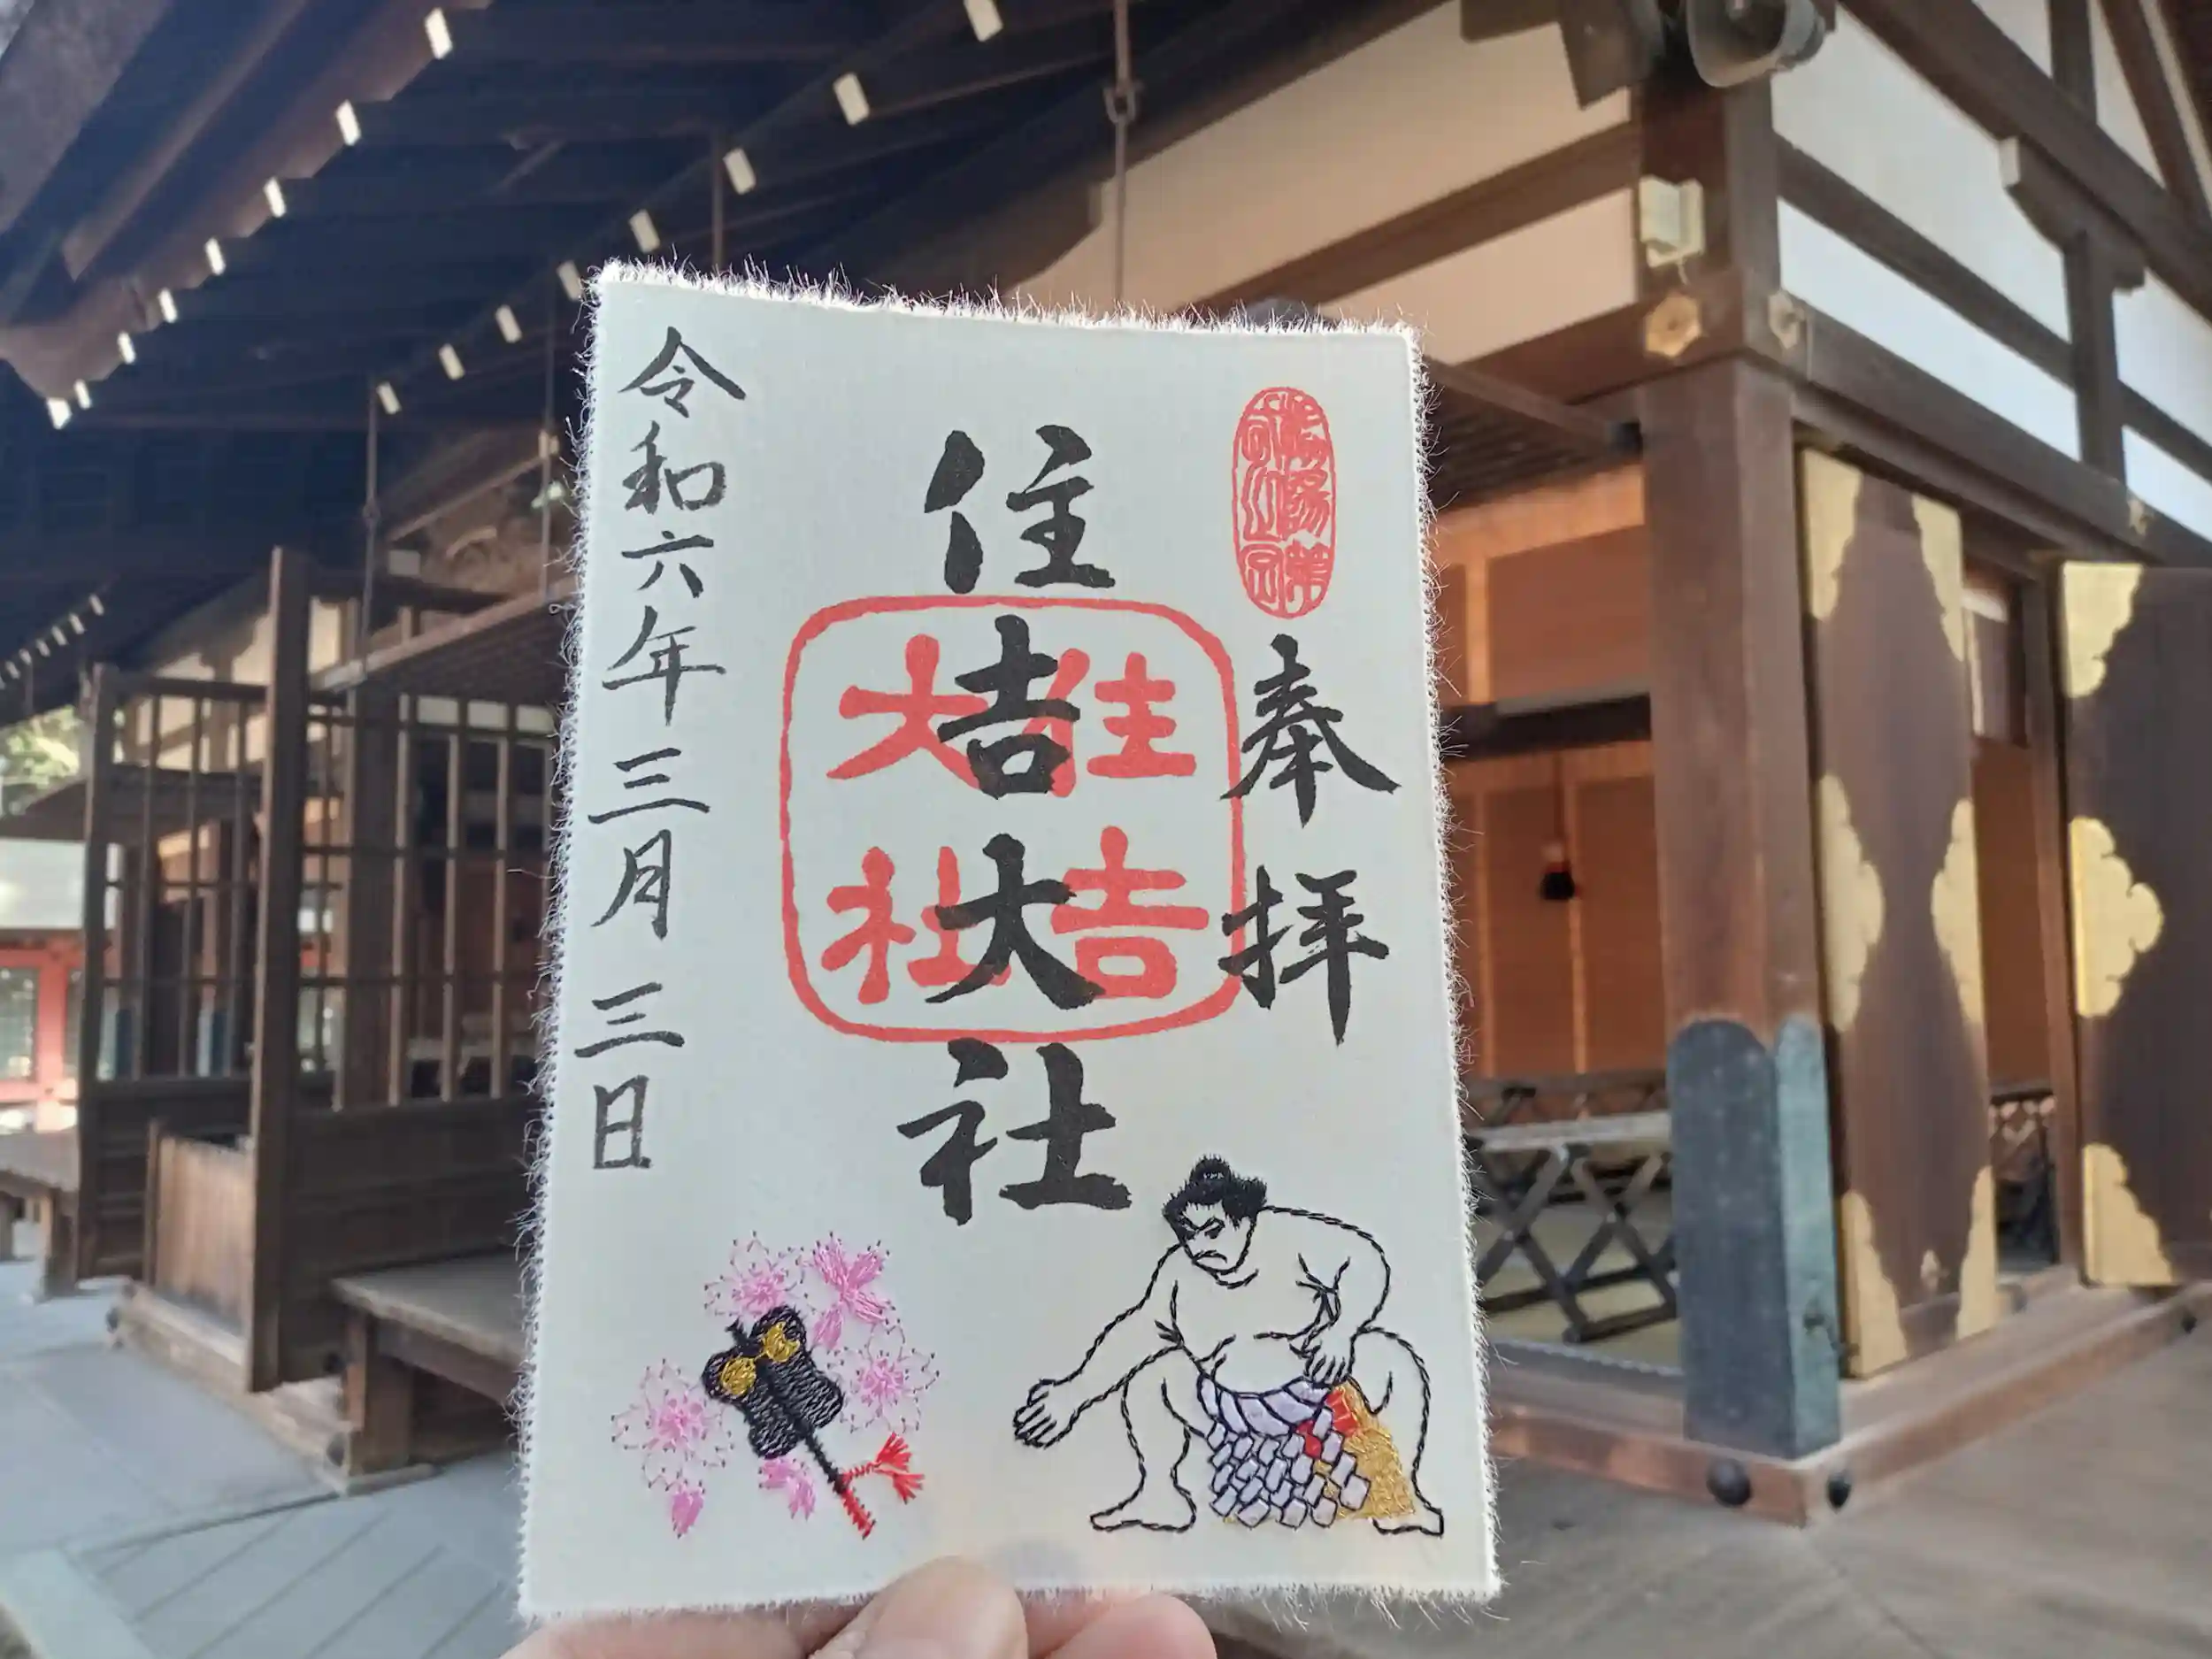 奉拝
住吉大社
住吉
大社
令和六年三月三日